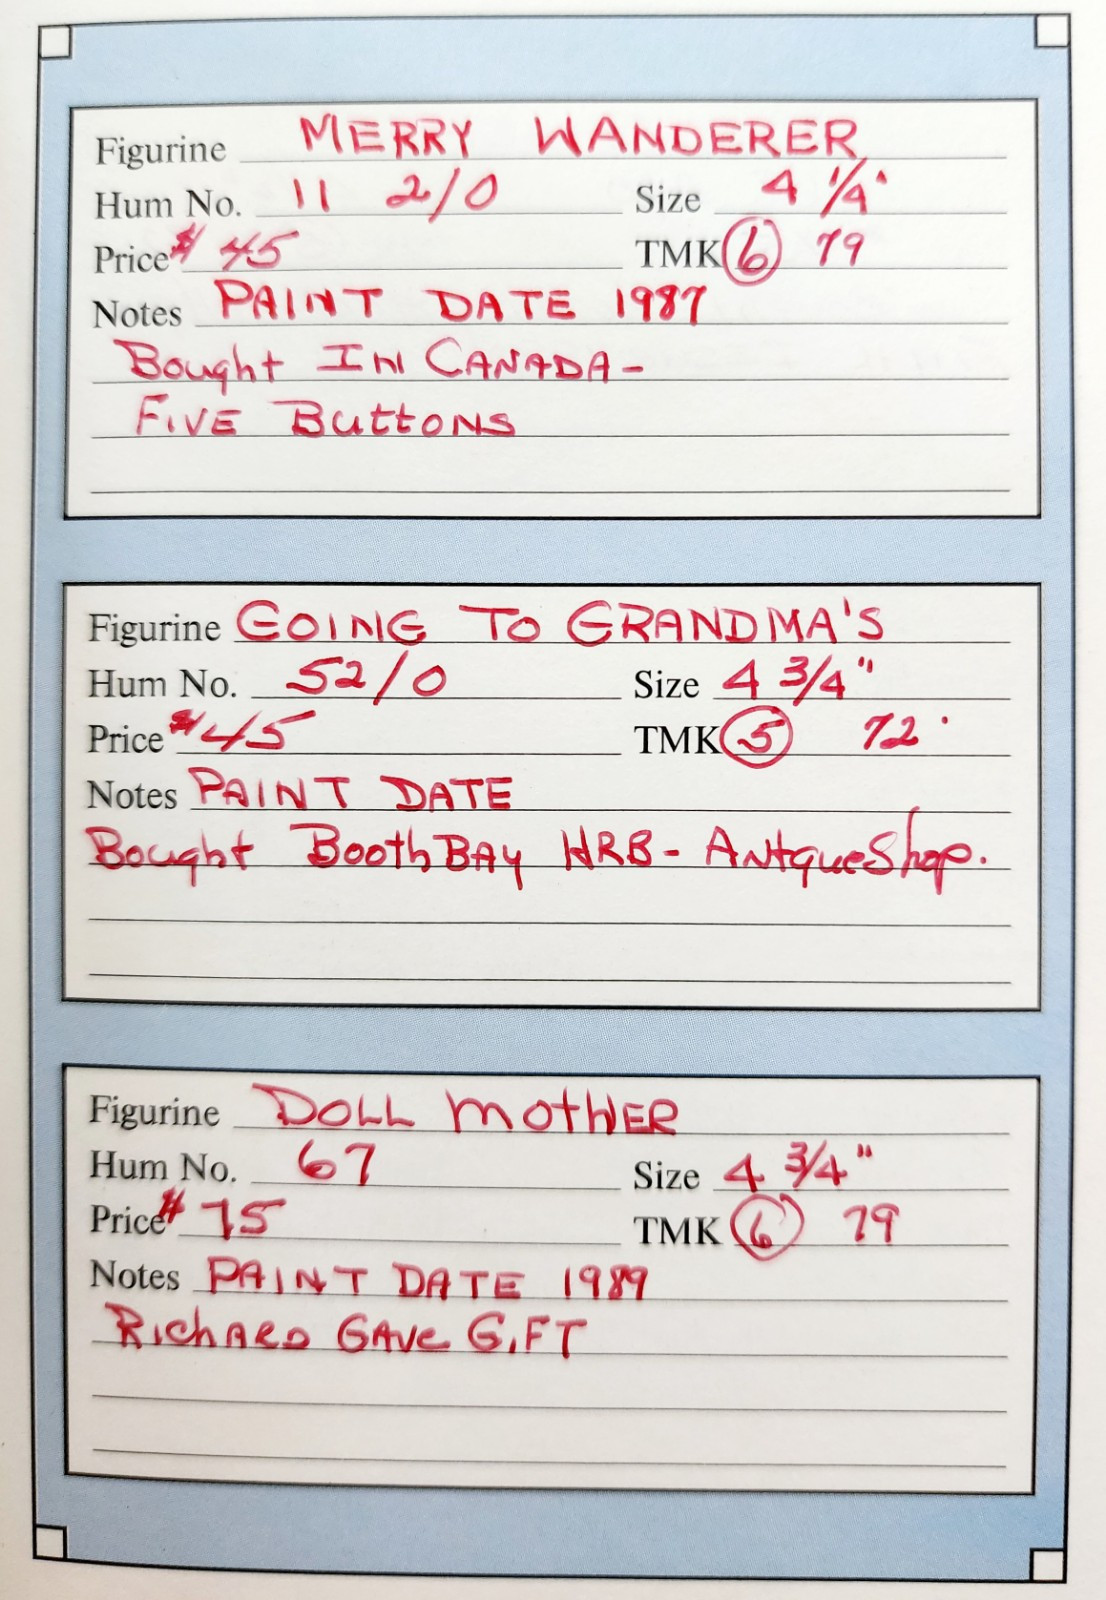 Figurine MERRY WANDERER
Hum No. 11 2/0 Size 4 1/4"
Price $45 TMK 6 79
Notes PAINT DATE 1987
Bought IN CANADA-
FIVE BuTTONS
Figurine GOING TO GRANDMA'S
Hum No. 52/0 Size 4 3/4"
Price $45 TMK 5 72
Notes PAINT DATE
Bought BoothBAy HRB- ANtqueShop.
Figurine DOLL MOTHER
Hum No. 67 Size 4 3/4"
Price $75 TMK 6 79
Notes PAINT DATE 1989
RichARD GAVE GiFT